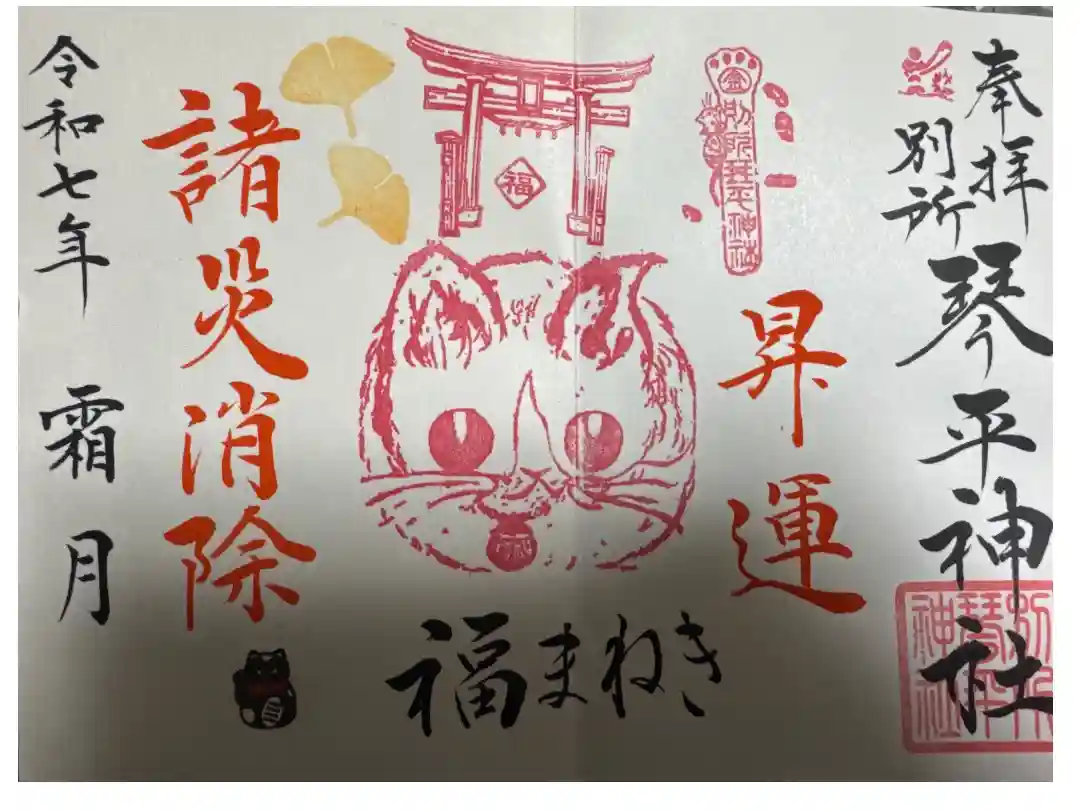 奉拝
別所
琴平神社
別所
琴平
神社
金
別所琴平神社
昇運
福
福まねき
諸災消除
令和七年 霜月